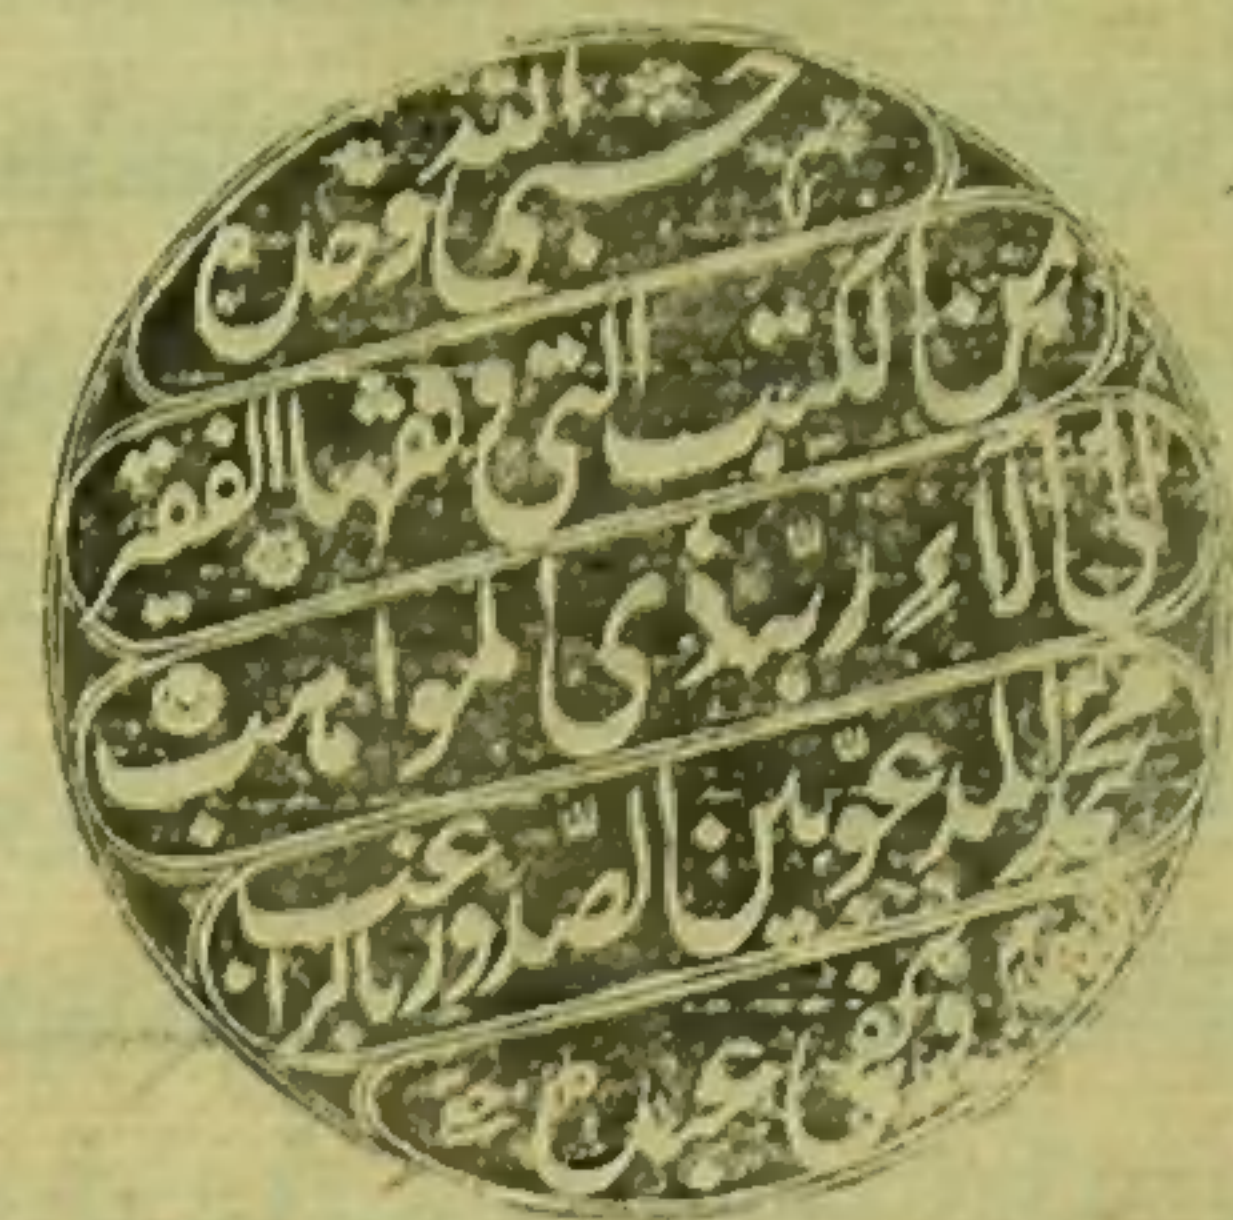 حسبي الله وحده
من الكتب التي وقفها الفقير
الى آلاء ربه ذي المواهب
محمد المدعو بين الصدور بالراغب